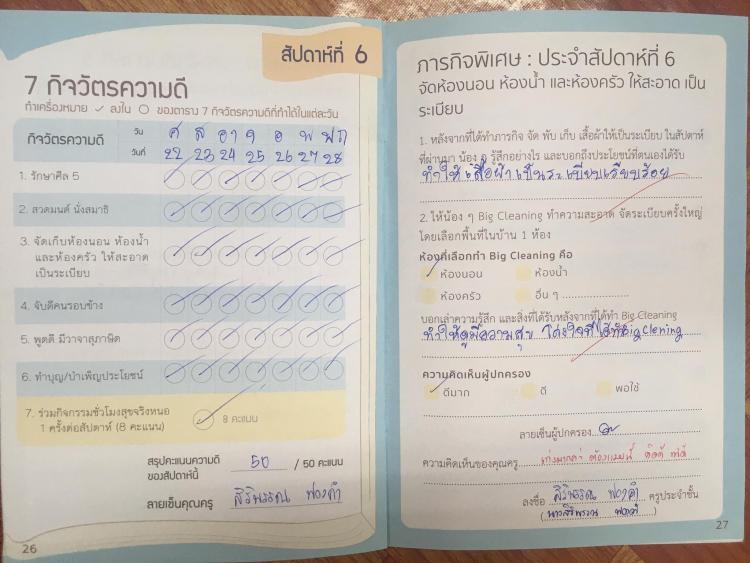 สัปดาห์ที่ 6
7 กิจวัตรความดี
ทำเครื่องหมาย ✓ ลงใน ○ ของตาราง 7 กิจวัตรความดีที่ทำได้ในแต่ละวัน
กิจวัตรความดี วัน ศ ส อา จ อ พ พฤ
วันที่ 22 23 24 25 26 27 28
1. รักษาศีล 5
2. สวดมนต์ นั่งสมาธิ
3. จัดเก็บห้องนอน ห้องน้ำ
และห้องครัว ให้สะอาด
เป็นระเบียบ
4. จับดีคนรอบข้าง
5. พูดดี มีวาจาสุภาษิต
6. ทำบุญ/บำเพ็ญประโยชน์
7. ร่วมกิจกรรมชั่วโมงสุขจริงหนอ
1 ครั้งต่อสัปดาห์ (8 คะแนน)
8 คะแนน
สรุปคะแนนความดี
ของสัปดาห์นี้ 50 / 50 คะแนน
ลายเซ็นคุณครู
26
ภารกิจพิเศษ : ประจำสัปดาห์ที่ 6
จัดห้องนอน ห้องน้ำ และห้องครัว ให้สะอาด เป็น
ระเบียบ
1. หลังจากที่ได้ทำภารกิจ จัด พับ เก็บ เสื้อผ้าให้เป็นระเบียบ ในสัปดาห์
ที่ผ่านมา น้อง ๆ รู้สึกอย่างไร และบอกถึงประโยชน์ที่ตนเองได้รับ
ทำให้เสื้อผ้าเป็นระเบียบเรียบร้อย
2. ให้น้อง ๆ Big Cleaning ทำความสะอาด จัดระเบียบครั้งใหญ่
โดยเลือกพื้นที่ในบ้าน 1 ห้อง
ห้องที่เลือกทำ Big Cleaning คือ
ห้องนอน ห้องน้ำ
ห้องครัว อื่น ๆ
บอกเล่าความรู้สึก และสิ่งที่ได้รับหลังจากที่ได้ทำ Big Cleaning
ทำให้ดูมีความสุข โล่งใจที่ได้ทำBig Clening
ความคิดเห็นผู้ปกครอง
ดีมาก ดี พอใช้
ลายเซ็นผู้ปกครอง
ความคิดเห็นของคุณครู
ลงชื่อ ครูประจำชั้น
27